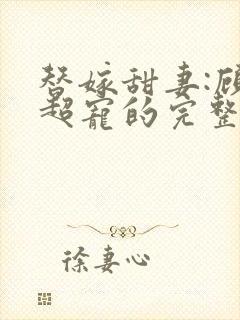 替嫁甜妻:顾
超宠的完整
徐妻心